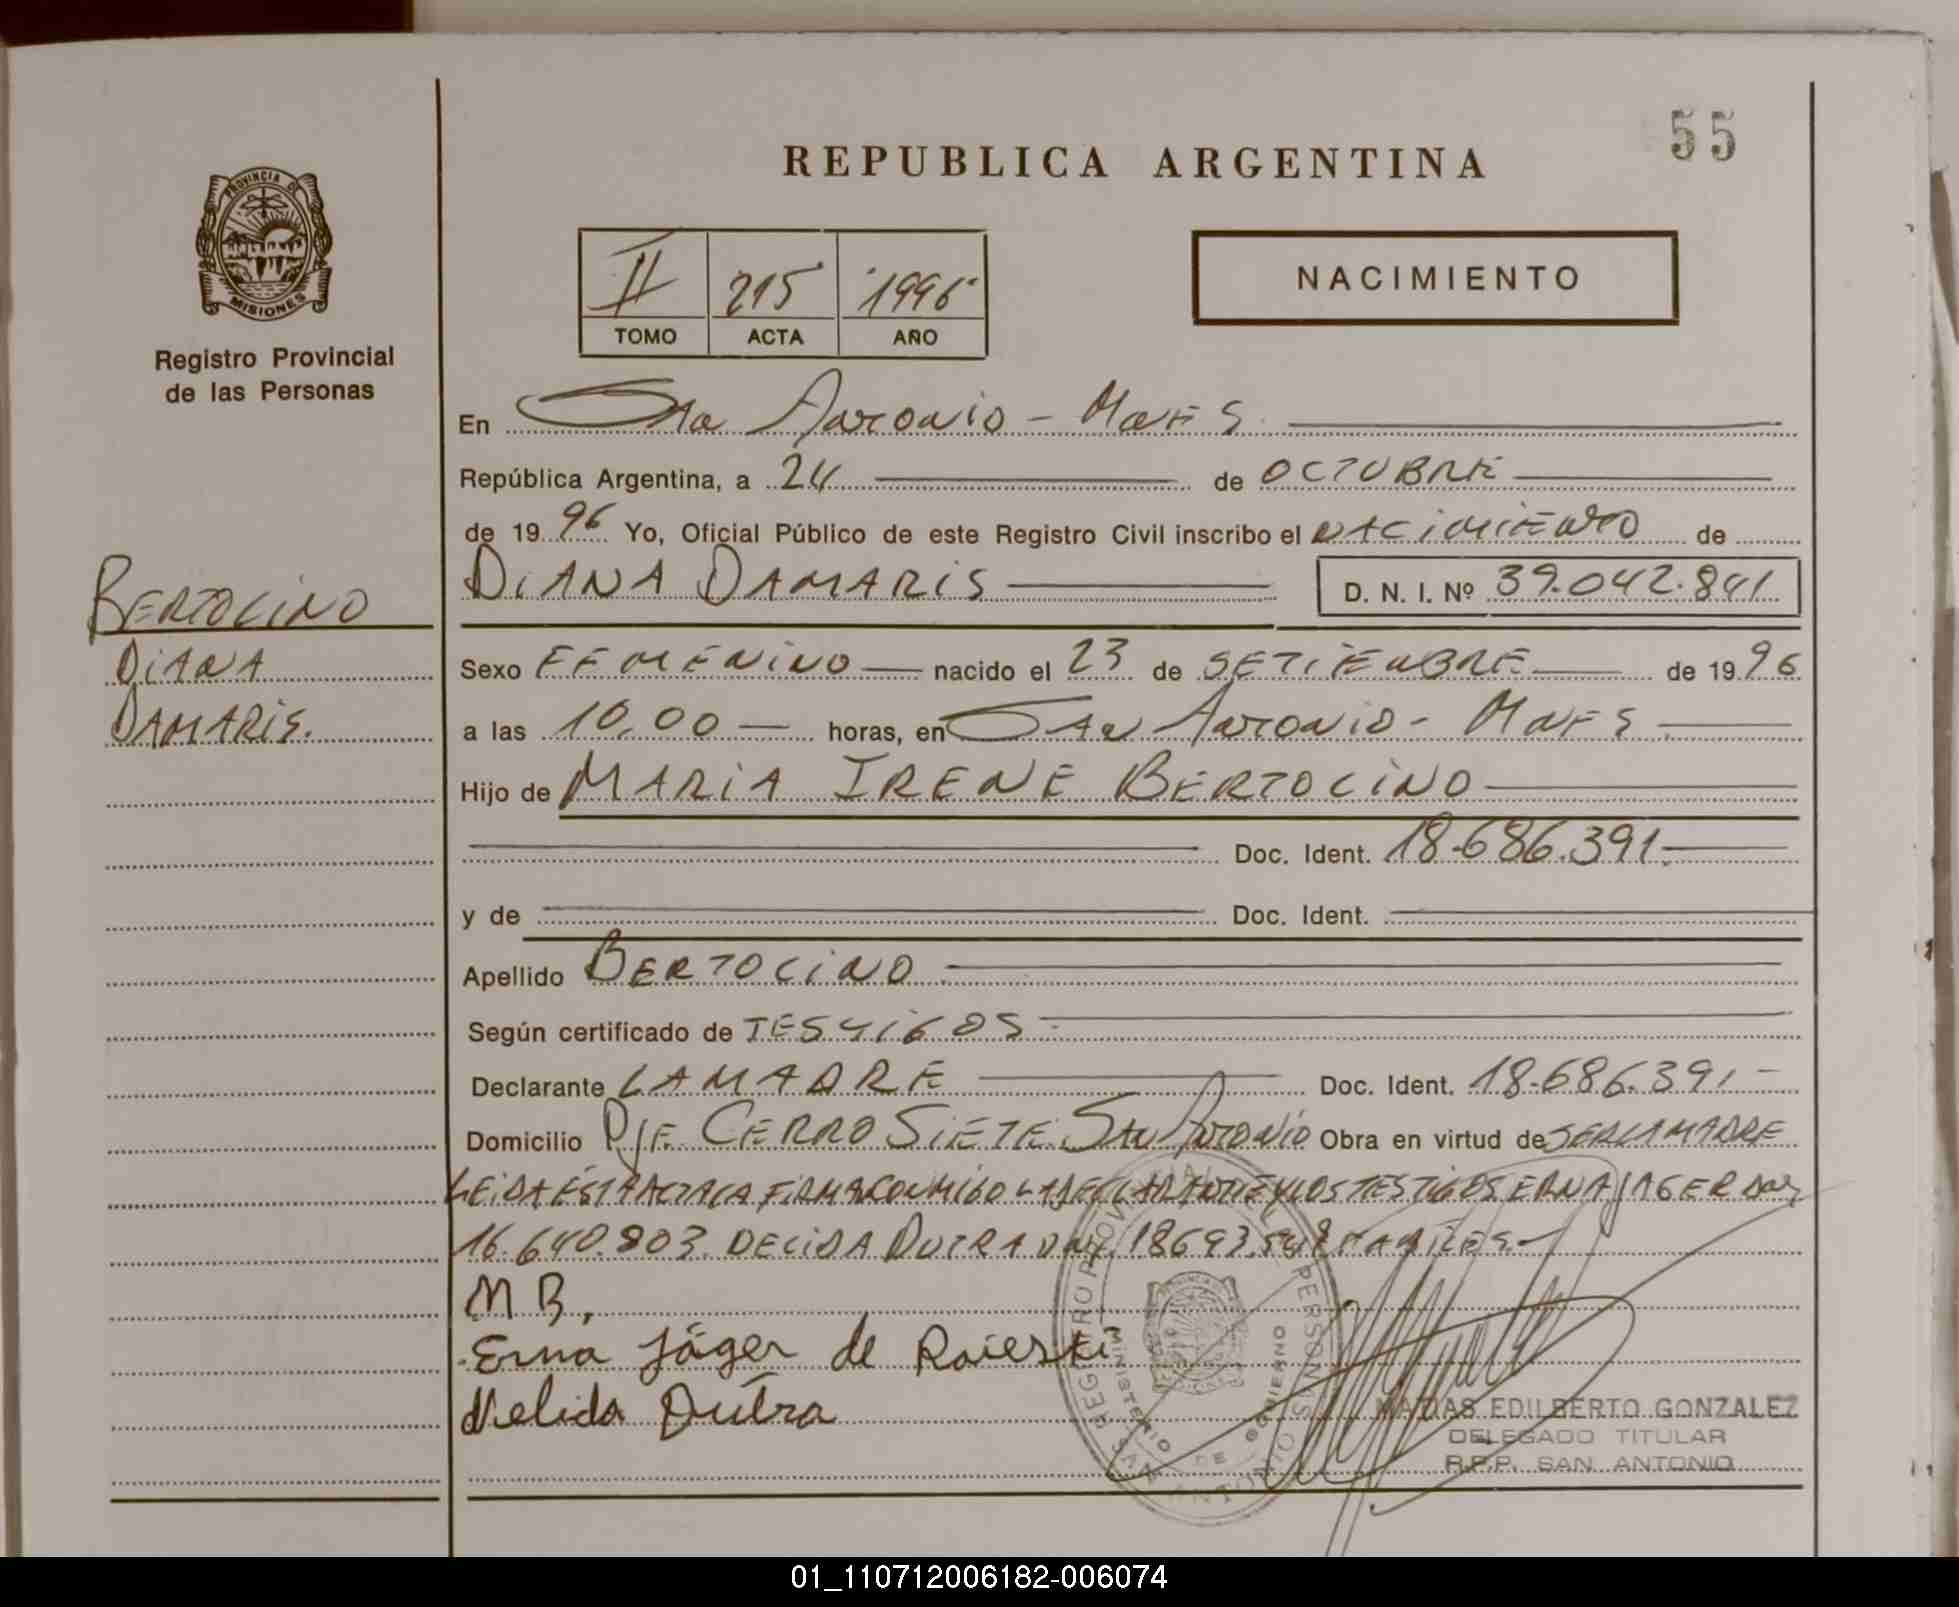 55
REPUBLICA ARGENTINA
PROVINCIA DE
MISIONES
II 215 1996
TOMO ACTA AÑO
NACIMIENTO
Registro Provincial
de las Personas
En San Antonio - Mnes
República Argentina, a 24 de OCTUBRE
de 1996 Yo, Oficial Público de este Registro Civil inscribo el NACIMIENTO de
BERTOLINO
DIANA
DAMARIS.
DIANA DAMARIS D. N. I. Nº 39.042.841
Sexo FEMENINO nacido el 23 de SETIEMBRE de 1996
a las 10,00 horas, en SAN ANTONIO - MNES
Hijo de MARIA IRENE BERTOLINO
Doc. Ident. 18.686.391.
y de Doc. Ident.
Apellido BERTOLINO
Según certificado de TESTIGOS
Declarante LA MADRE Doc. Ident. 18.686.391
Domicilio Pje. CERRO SIETE San Antonio Obra en virtud de SER LA MADRE
LEIDA ESTA ACTA LA FIRMA CONMIGO LA DECLARANTE Y LOS TESTIGOS ERNA JAGER DNI
16.640.803. DELIDA DUTRA DNI 18693
M B,
Erna Jäger de Raieski
Nelida Dutra
REGISTRO PROVINCIAL DE LAS PERSONAS
MINISTERIO DE GOBIERNO
SAN ANTONIO
MATIAS EDILBERTO GONZALEZ
DELEGADO TITULAR
R.P.P. SAN ANTONIO
01_110712006182-006074